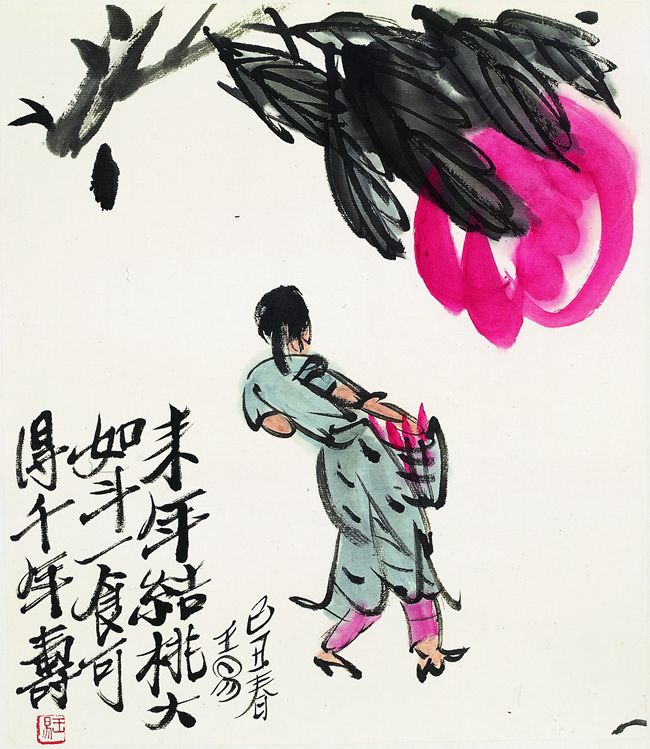 来年結桃大
如斗一食可
得千年壽
己丑春
王易